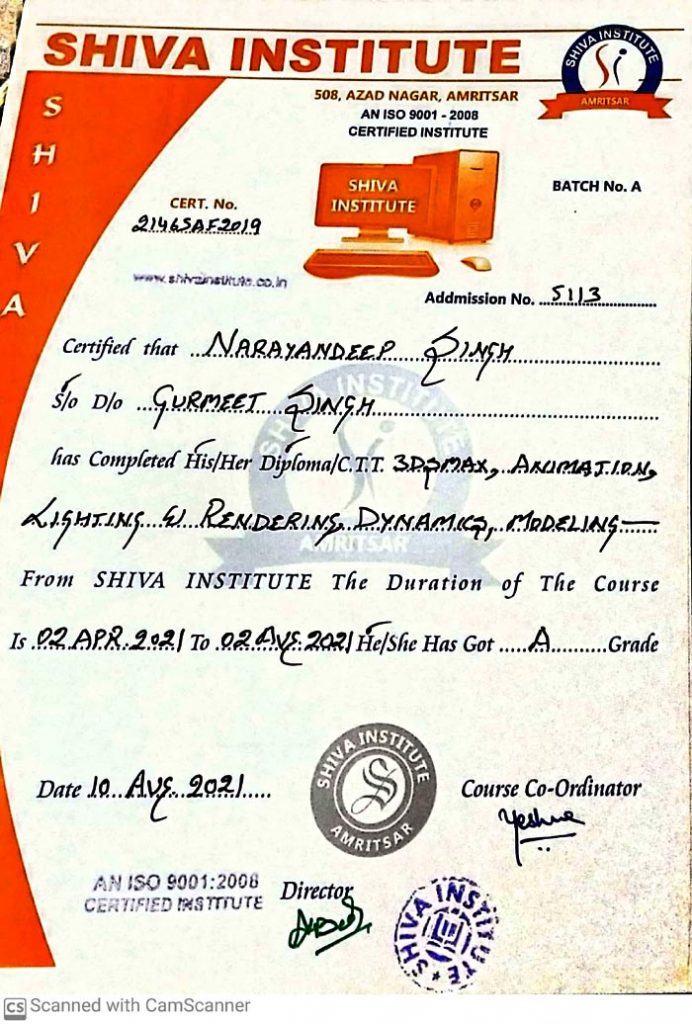 SHIVA INSTITUTE
SHIVA INSTITUTE
AMRITSAR
508, AZAD NAGAR, AMRITSAR
AN ISO 9001 - 2008
CERTIFIED INSTITUTE
SHIVA
SHIVA
INSTITUTE
BATCH No. A
CERT. No.
2146SAF2019
www.shivainstitute.co.in
Addmission No. 5113
Certified that NARAYANDEEP SINGH
S/o D/o GURMEET SINGH
has Completed His/Her Diploma/C.T.T. 3DSMAX, ANIMATION,
LIGHTING & RENDERING, DYNAMICS, MODELING
INSTITUTE
AMRITSAR
From SHIVA INSTITUTE The Duration of The Course
Is 02 APR 2021 To 02 AUG 2021 He/She Has Got A Grade
Date 10 AUG 2021
SHIVA INSTITUTE
AMRITSAR
Course Co-Ordinator
AN ISO 9001:2008
CERTIFIED INSTITUTE
Director
SHIVA INSTITUTE
CS Scanned with CamScanner